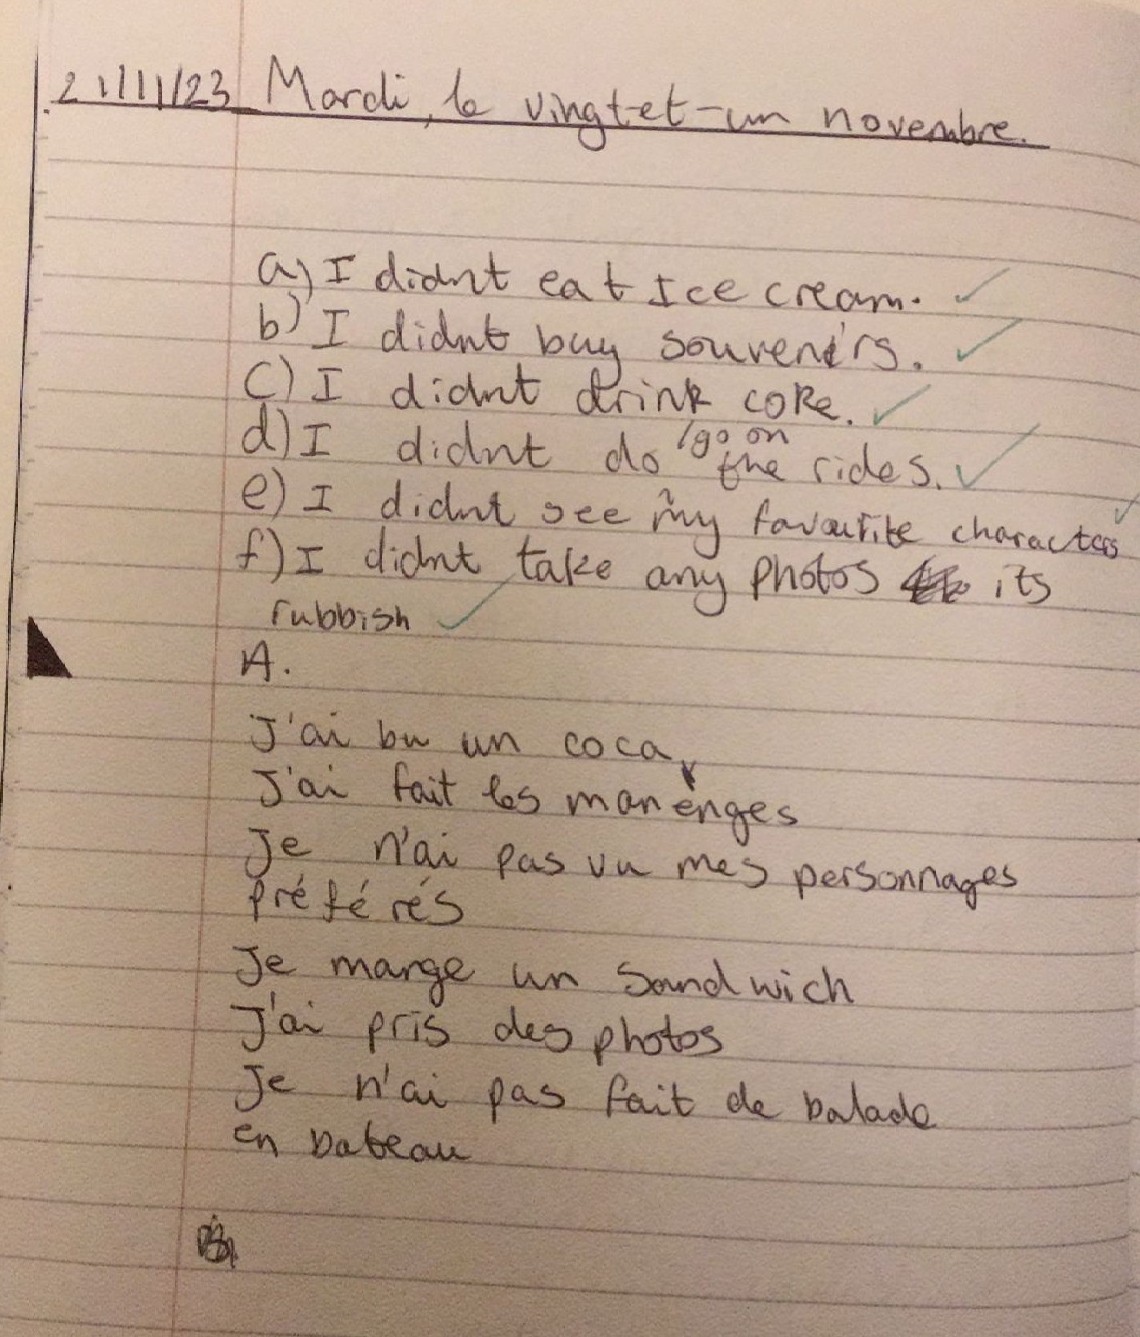 21/11/23 Mardi, le vingt-et-un novembre.
a) I didnt eat Ice cream.
b) I didnt buy souvenirs.
c) I didnt drink coke.
d) I didnt do /go on the rides.
e) I didnt see my favourite characters
f) I didnt take any photos its
rubbish
A.
J'ai bu un coca
J'ai fait les manenges
Je n'ai pas vu mes personnages
préférés
Je mange un sandwich
J'ai pris des photos
Je n'ai pas fait de balade
en bateau